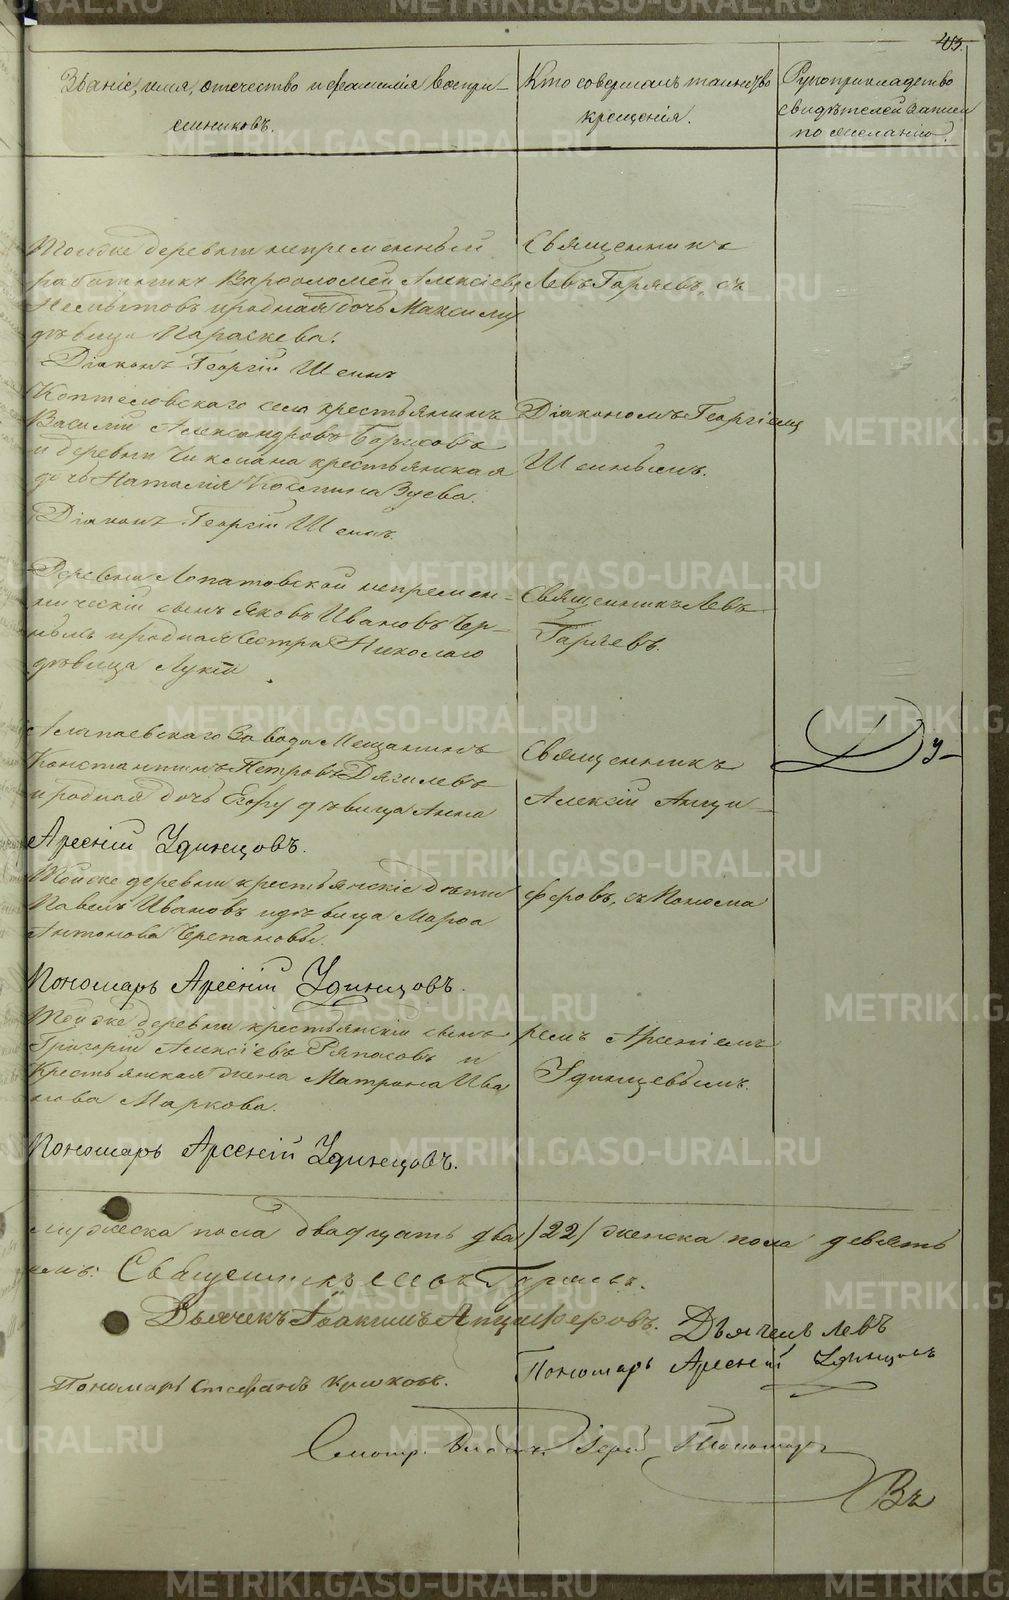 403.
Званіе, имя, отечество и фамилія воспри-
емниковъ.
Кто совершалъ таинство
крещенія.
Рукоприкладство
свидѣтелей записи
по желанію.
Тойже деревни непременный
работникъ Варфоломей Алексіевъ
и родная дочь Максима
дѣвица Параскева.
Діаконъ Георгій Шеинъ
Священникъ
Левъ Гаряевъ, съ
Коптеловскаго села крестьянинъ
Василій Александровъ
и деревни крестьянская
дочь Наталія Зуева.
Діаконъ Георгій Шеинъ.
Діакономъ Георгіемъ
Шеинымъ.
Деревни Лопатовской непремен-
ническій сынъ Яковъ Ивановъ Чер-
ныхъ и родная сестра Николаю
дѣвица Лукія
Священникъ Левъ
Гаряевъ.
Алапаевскаго Завода Мещанинъ
Константинъ Петровъ Дягилевъ
и родная дочь Егору дѣвица Анна
Арсеній Удинцовъ.
Священникъ
Алексій Анци-
Ду-
Тойже деревни крестьянскіе дѣти
Павелъ Ивановъ и дѣвица Марѳа
Антонова Черепановы.
Пономарь Арсеній Удинцовъ.
феровъ, съ Понома
Тойже деревни крестьянскій сынъ
Григорій Алексіевъ Ряпосовъ и
крестьянская жена Матрона Ива
нова Маркова.
Пономарь Арсеній Удинцовъ.
ремъ Арсеніемъ
Удинцевымъ.
мужеска пола двадцать два /22/ женска пола девять
Священникъ Левъ Гаряевъ.
Дьячекъ Іоакимъ Анциферовъ. Дьячекъ Левъ
Пономарь Арсеній Удинцовъ
Пономарь Стефанъ
Смотр. Іерей
Въ
METRIKI.GASO-URAL.RU